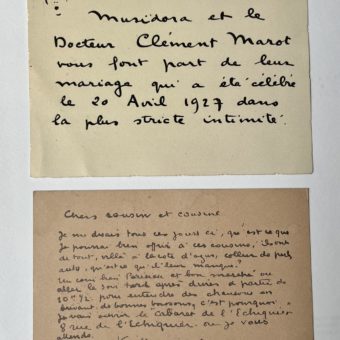 Musidora et le
Docteur Clément Marot
vous font part de leur
mariage qui a été célébré
le 20 Avril 1927 dans
la plus stricte intimité.
Chers cousin et cousine
Je me disais tous ces jours ci, qu'est ce que
je pourrai bien offrir à ces cousins, ils ont
de tout, villa à la côte d'azur, colliers de perles
auto, qu'est ce qu'il leur manque?
Un coin bien Parisien et bon marché où
aller le soir tard après diner à partir de
10h ½ pour entendre des chansons en
buvant de bonnes boissons, c'est pourquoi
Je vais ouvrir le Cabaret de l'Echiquier
8 rue de l'Echiquier où je vous
attends.